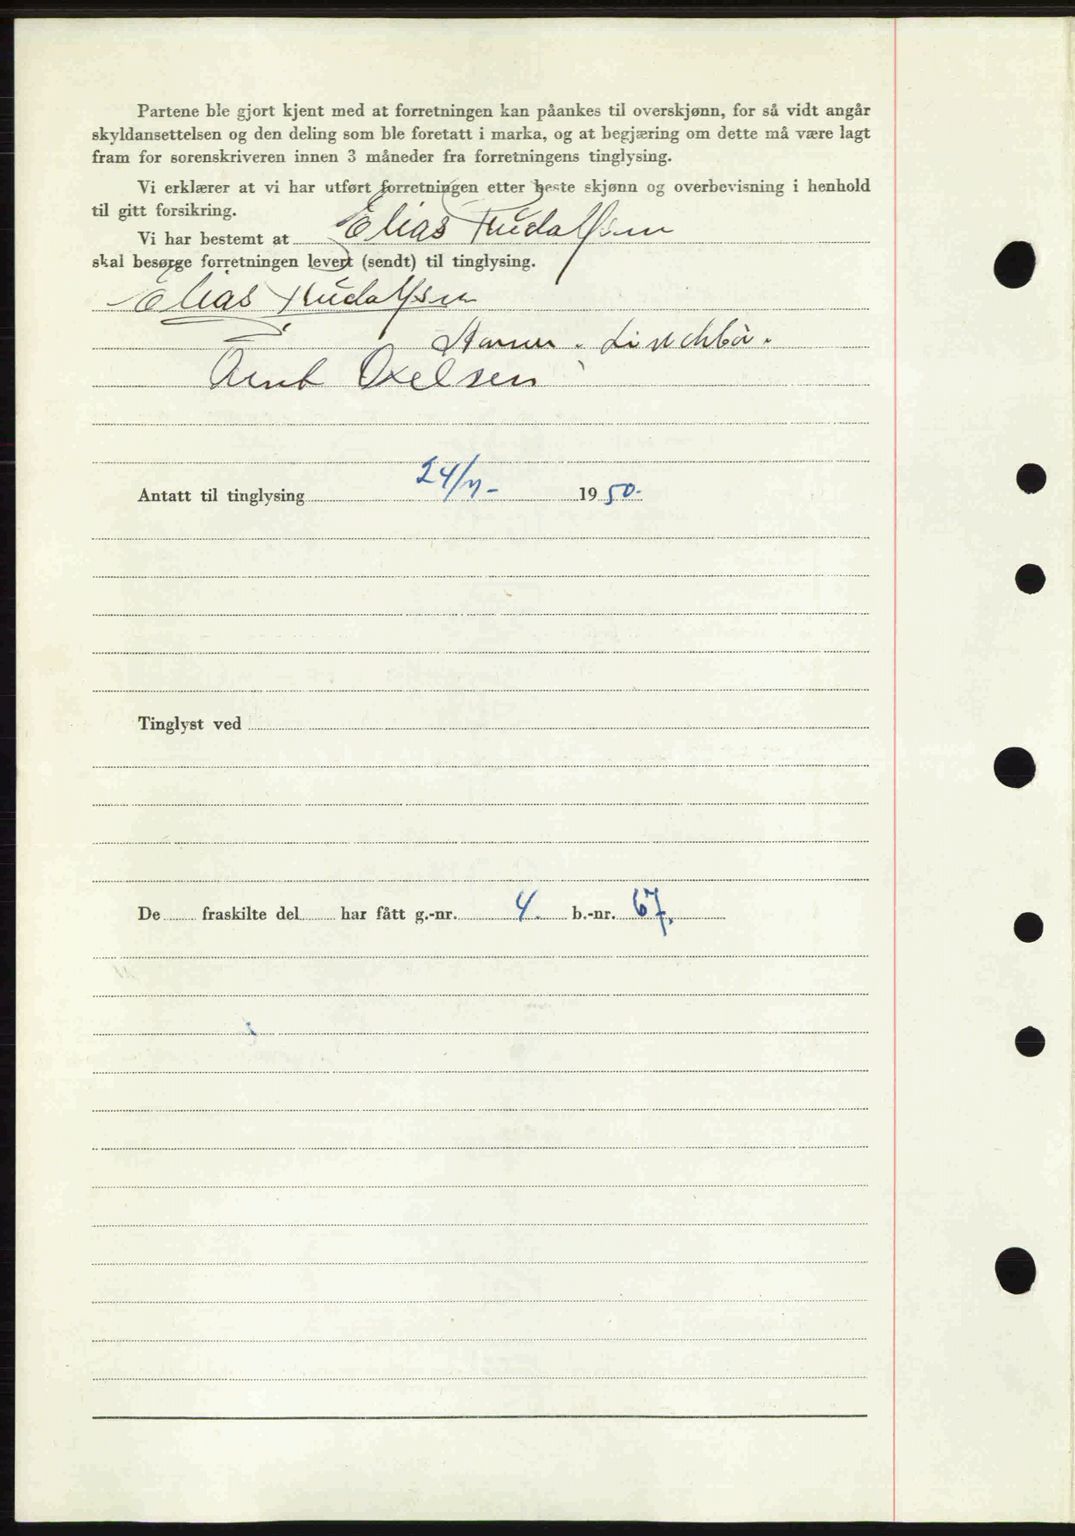 Partene ble gjort kjent med at forretningen kan påankes til overskjønn, for så vidt angår
skyldansettelsen og den deling som ble foretatt i marka, og at begjæring om dette må være lagt
fram for sorenskriveren innen 3 måneder fra forretningens tinglysing.
Vi erklærer at vi har utført forretningen etter beste skjønn og overbevisning i henhold
til gitt forsikring.
Vi har bestemt at Elias
skal besørge forretningen levert (sendt) til tinglysing.
Elias
Antatt til tinglysing 24/ 1950.
Tinglyst ved
De fraskilte del har fått g.-nr. 4. b.-nr. 67.